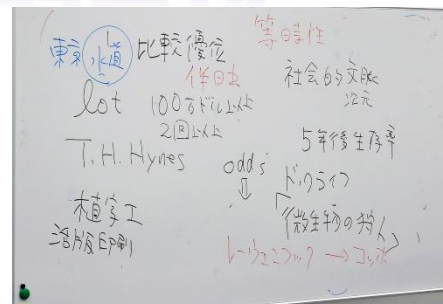 東京水道
比較優位
等時性
伴性虫
社会的文脈
次元
lot
100万ドル以上
2回以上
5年後生存率
T.H.Hynes
odds
⇩
ド・クライフ
植字工
「微生物の狩人」
活版印刷
レーウェンフック→コッホ